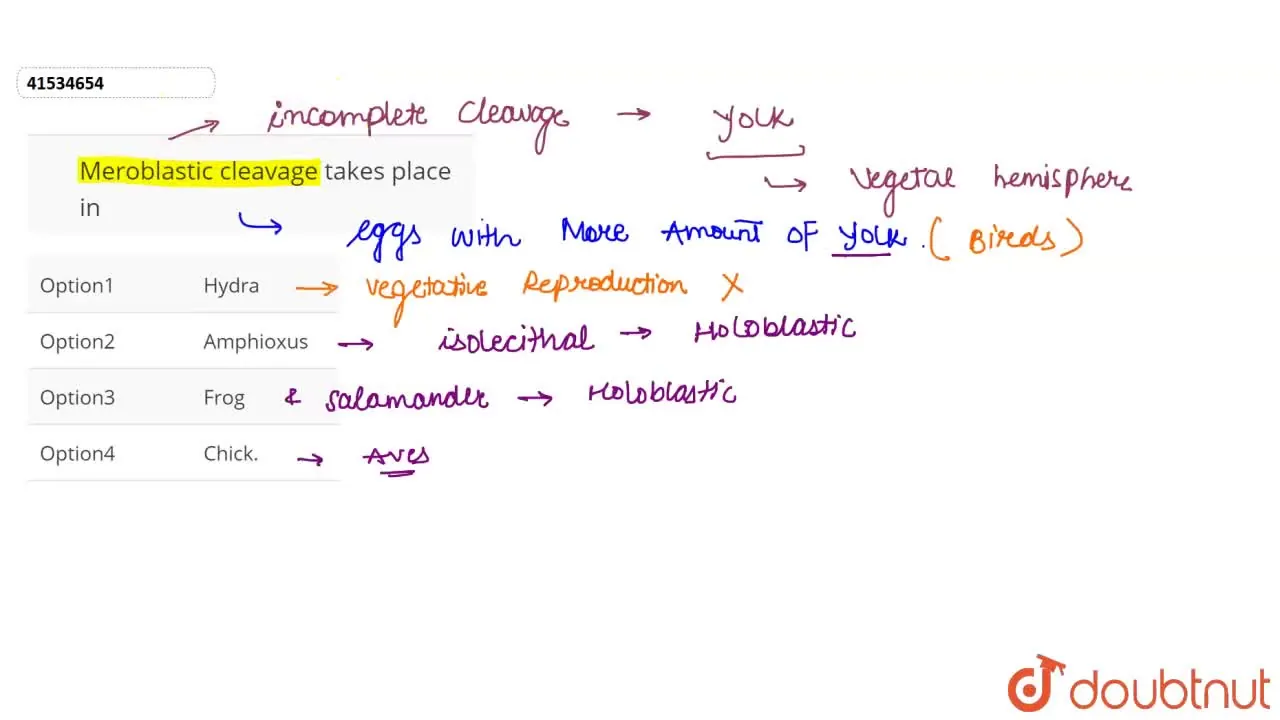 41534654
incomplete Cleavage → Yolk
Meroblastic cleavage takes place
↳ Vegetal hemisphere
in
↳ eggs with More Amount OF Yolk. (Birds)
Option1 Hydra → Vegetative Reproduction X
Option2 Amphioxus → isolecithal → Holoblastic
Option3 Frog & Salamander → Holoblastic
Option4 Chick. → Aves
doubtnut